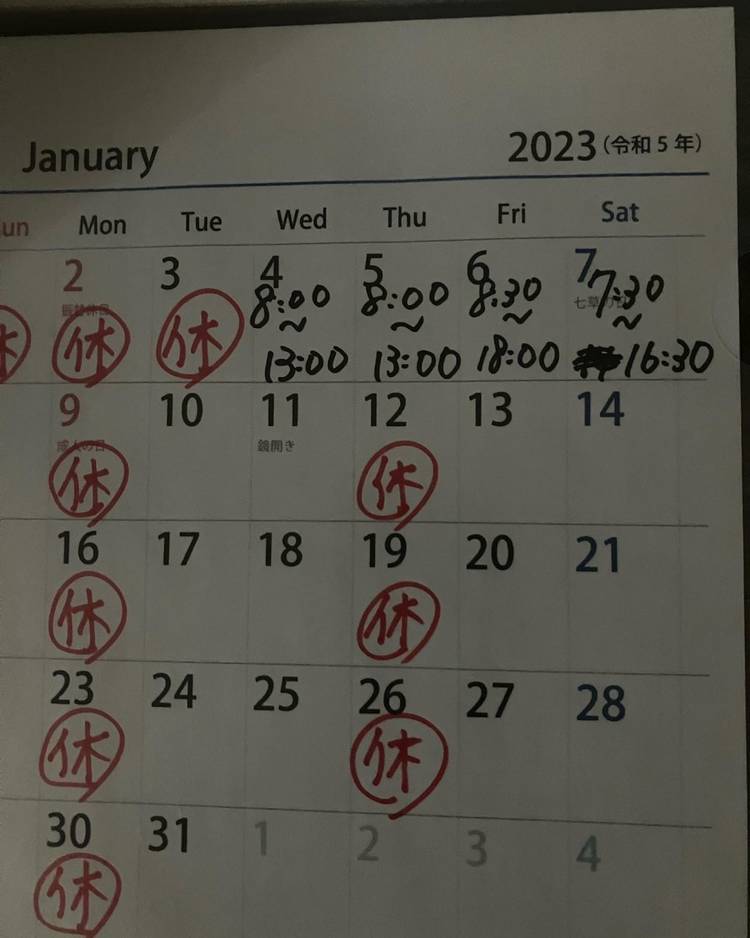 January 2023(令和5年)
un Mon Tue Wed Thu Fri Sat
2 3 4 5 6 7
振替休日 七草の日
8:00 8:00 8:30 7:30
休 休 休 ~ ~ ~ ~
13:00 13:00 18:00 16:30
9 10 11 12 13 14
成人の日 鏡開き
休 休
16 17 18 19 20 21
休 休
23 24 25 26 27 28
休 休
30 31 1 2 3 4
休